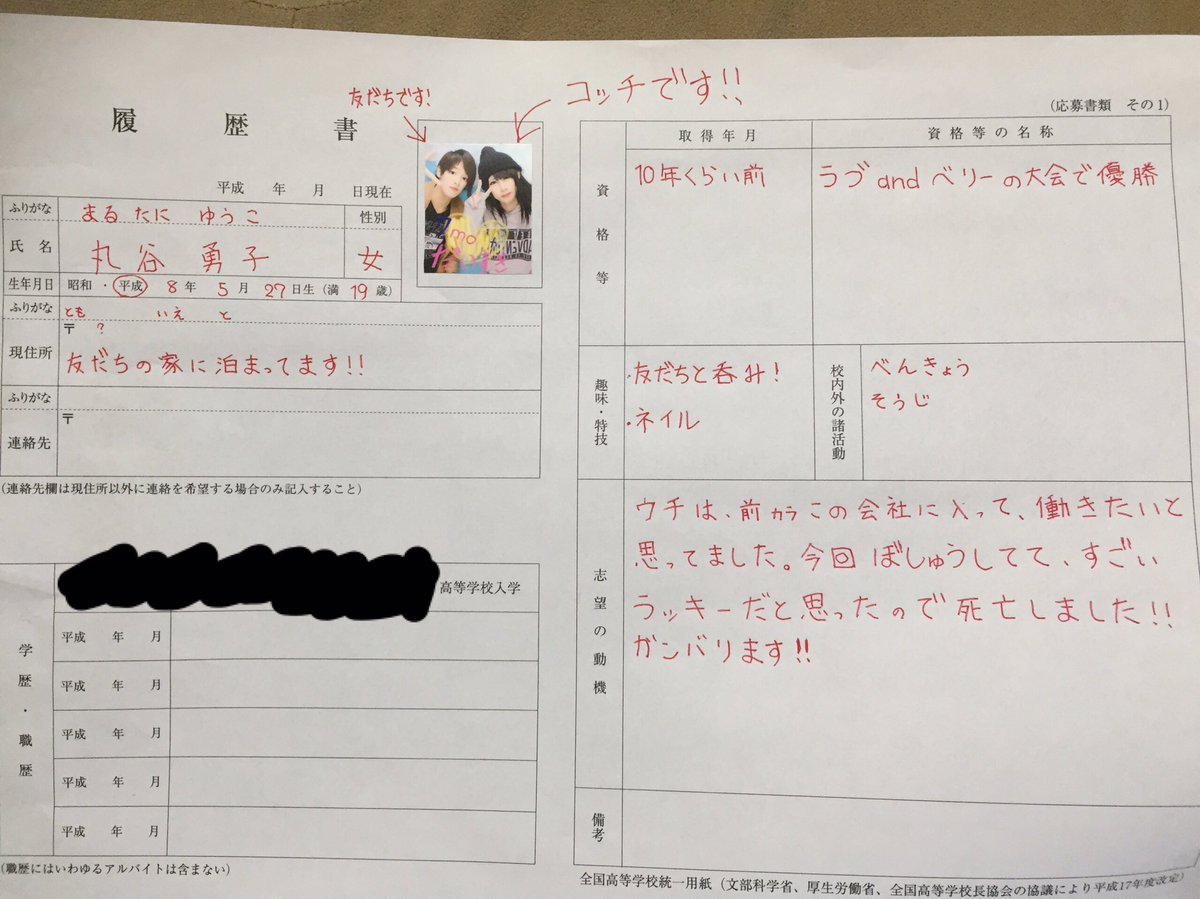 友だちです!
コッチです!!
履歴書
平成 年 月 日現在
ふりがな まるたに ゆうこ 性別
氏名 丸谷 勇子 女
生年月日 昭和・平成 8年 5月 27日生(満 19歳)
ふりがな とも いえ と
〒 ?
現住所 友だちの家に泊まってます!!
ふりがな
〒
連絡先
(連絡先欄は現住所以外に連絡を希望する場合のみ記入すること)
学歴・職歴
高等学校入学
平成 年 月
平成 年 月
平成 年 月
平成 年 月
平成 年 月
(職歴にはいわゆるアルバイトは含まない)
(応募書類 その1)
資格等
取得年月 資格等の名称
10年くらい前 ラブandベリーの大会で優勝
趣味・特技
・友だちと呑み!
・ネイル
校内外の諸活動
べんきょう
そうじ
志望の動機
ウチは、前カラこの会社に入って、働きたいと
思ってました。今回ぼしゅうしてて、すごい
ラッキーだと思ったので死亡しました!!
ガンバります!!
備考
全国高等学校統一用紙(文部科学省、厚生労働省、全国高等学校長協会の協議により平成17年度改定)